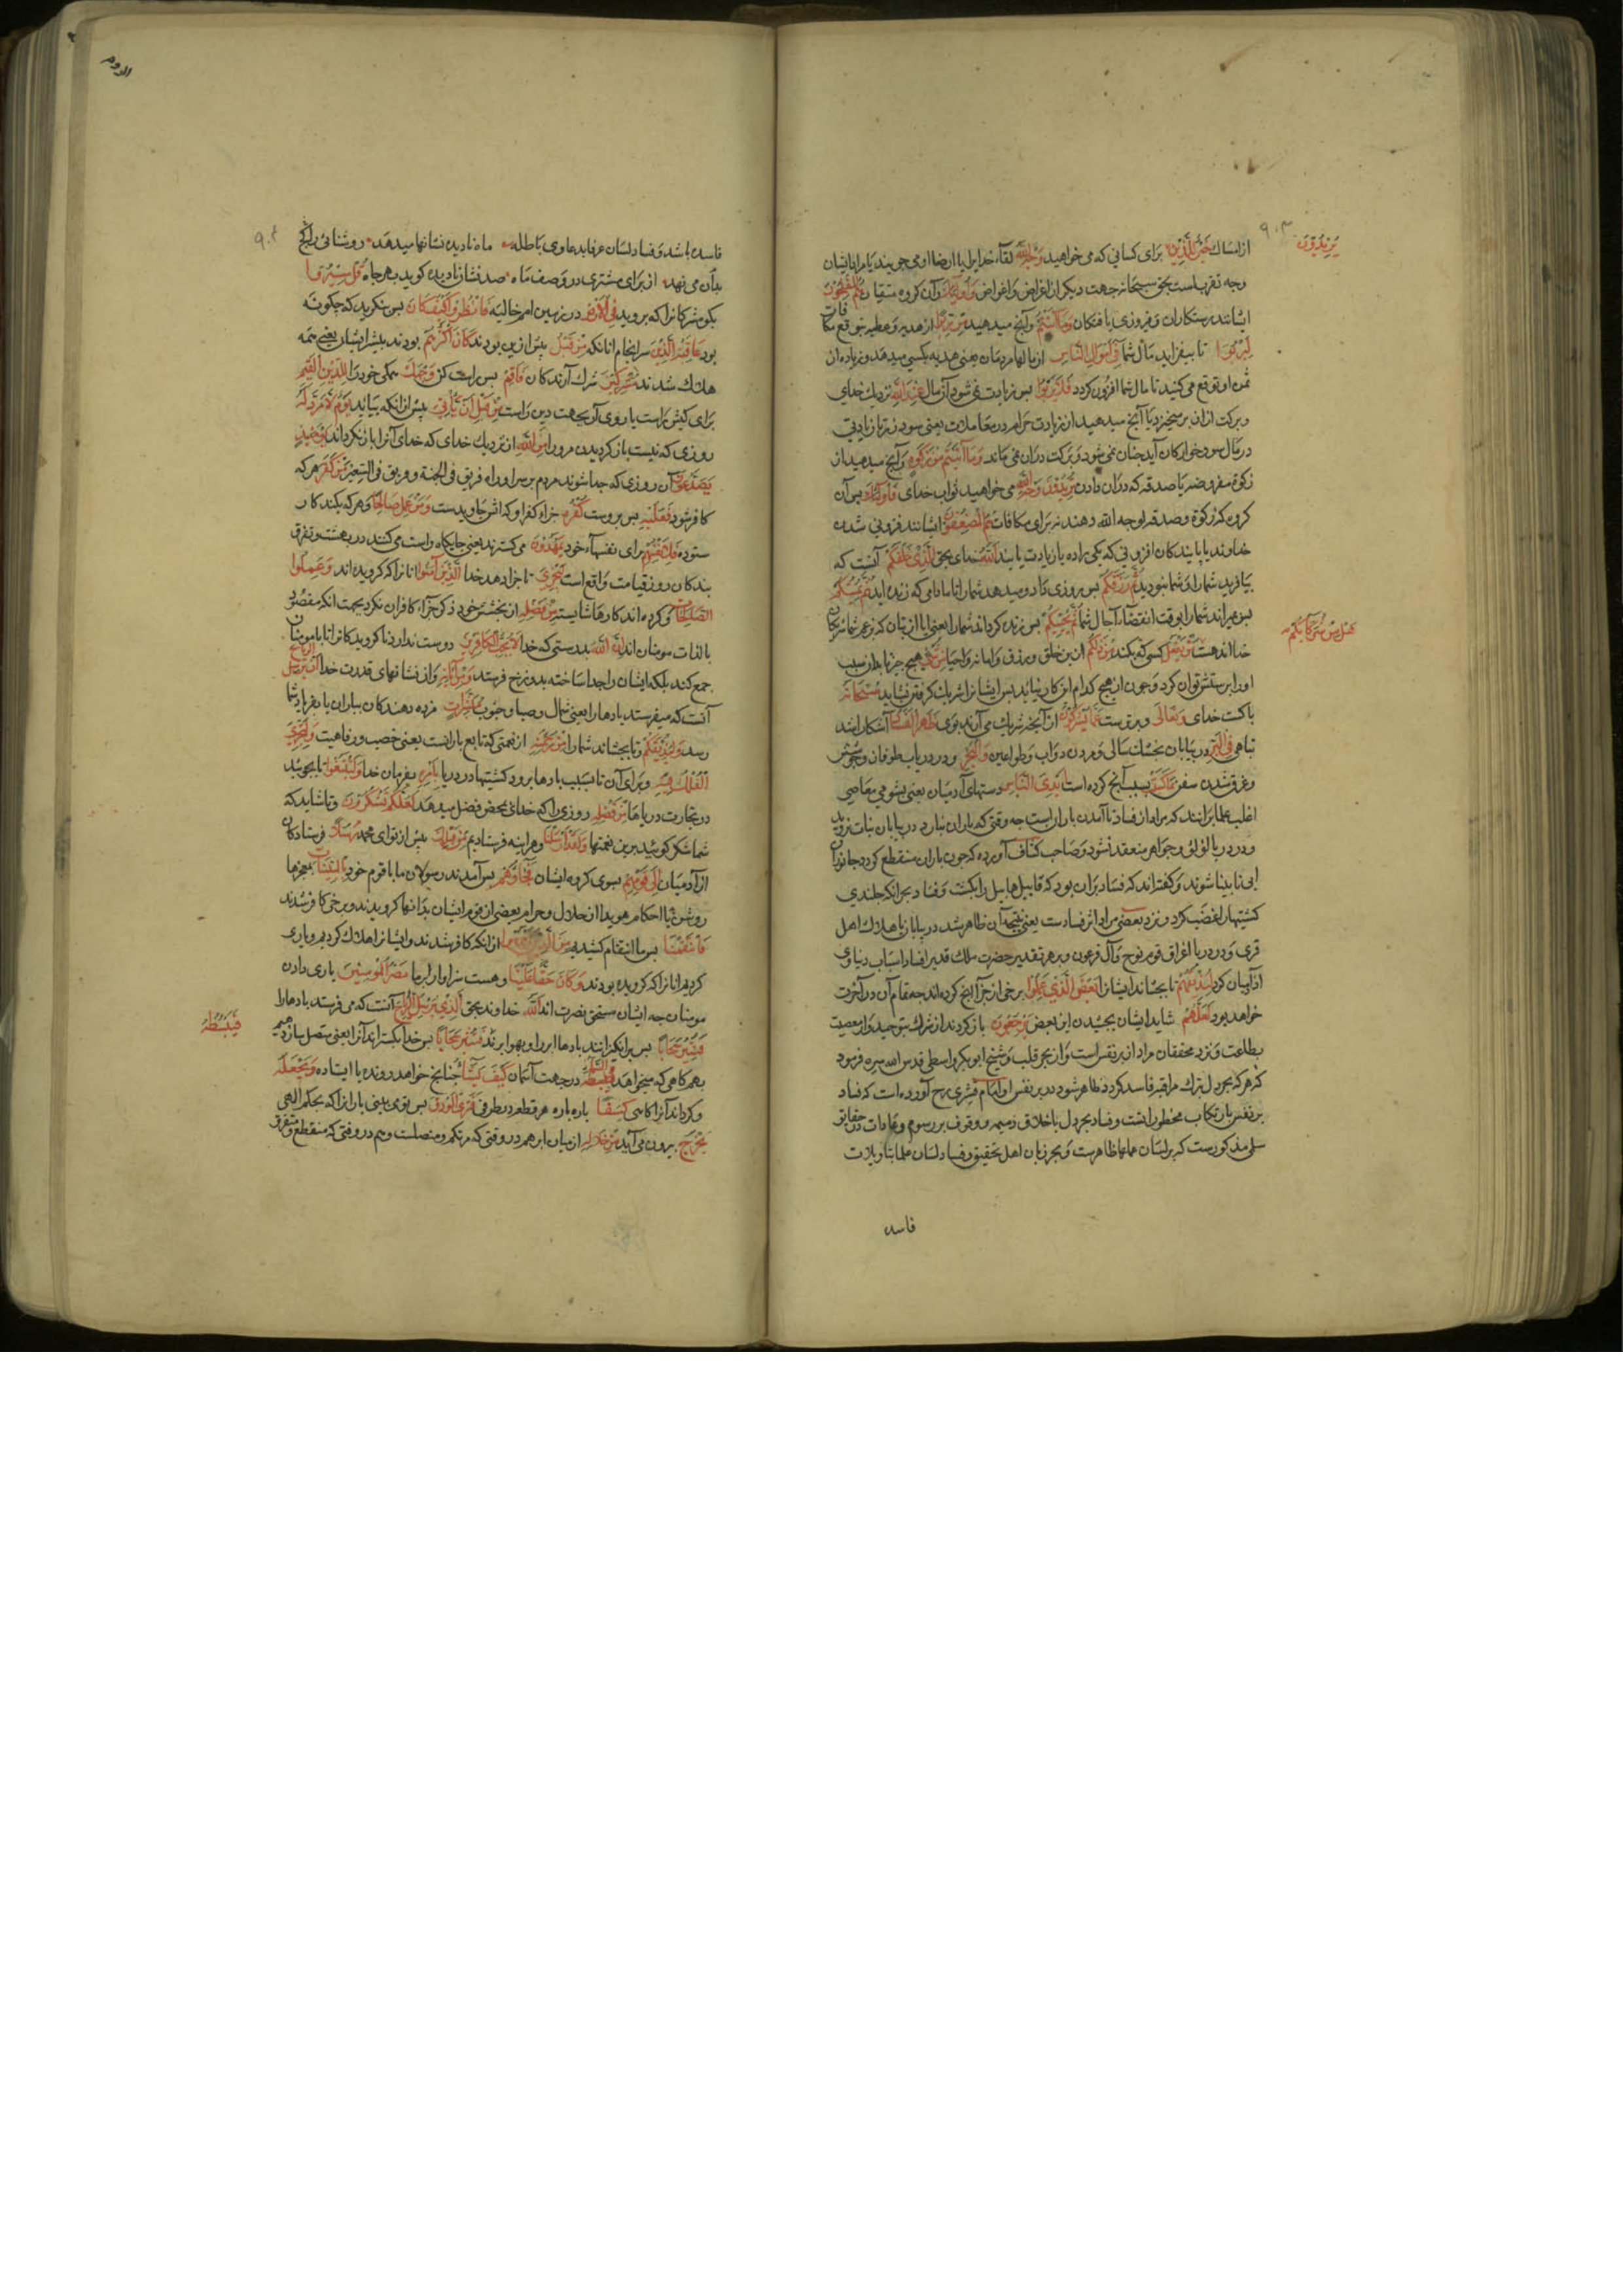 یُرِیدُونَ
از امساك خَیْرٌ لِلَّذِینَ برای کسانی که می خواهید وَجْهَ اللّٰهِ لقآء خدایرا یا رضا او می جویند یا مراد ایشان
وجه تقرب است بحق سبحانه نه جهت دیگر از اغراض و اعواض وَاُولٰئِكَ وآن کروه متقیان هُمُ الْمُفْلِحُونَ
ایشانند رستکاران و فیروزی یافتکان وَمَا آتَیْتُمْ وآنچ میدهید مِنْ رِبًا از هدیه و عطیه بتوقع مکافات
لِیَرْبُوَا تا بیفزاید مال شما فِی اَمْوَالِ النَّاسِ از مالهاء مردمان یعنی هدیه بکسی میدهد و زیاده از
ثمن او توقع می کنید تا مال شما افزون کردد فَلَا یَرْبُوا بس زیادت نمی شود آن مال عِنْدَ اللّٰهِ نزدیك خدای
وبرکت ازان بر میخیزد یا آنچ میدهید از زیادت حرام در معاملات یعنی سود نه زیادتی
در مال سود خوارکان آید جنان نمی شود و برکت دران نمی ماند وَمَا آتَیْتُمْ مِنْ زَکٰوةٍ وآنچ میدهید از
زکوة مفروضه یا صدقه که دران دادن تُرِیدُونَ وَجْهَ اللّٰهِ می خواهید ثواب خدای فَاُولٰئِكَ بس آن
کروه که زکوة وصدقه لوجه الله دهند نه برای مکافات هُمُ الْمُضْعِفُونَ ایشانند فزونی شدن
خداوند یا یابندکان افزونی که یکی را ده یا زیادت یابند اَللّٰهُ خدای بحق الَّذِی خَلَقَکُمْ آنست که
بیافرید شما را و شما نبودید ثُمَّ رَزَقَکُمْ بس روزی داد ومیدهد شما را تا مادامی که زنده اید ثُمَّ یُمِیتُکُمْ
بس میراند شما را بوقت انقضاء آجال شما ثُمَّ یُحْیِیکُمْ بس زنده کرداند شما را یعنی ایا از بتان که بزعم شما شریکان
هَلْ مِنْ شُرَکَآئِکُمْ
خدا اند هست مَنْ یَفْعَلُ کسی که بکند مِنْ ذٰلِکُمْ ازین خلق ورزق و اماته و احیا مِنْ شَیْءٍ هیچ جیز تا بدان سبب
اورا پرستش توان کرد وچون از هیچ کدام این کار نیاید بس ایشانرا شریك کرفتن نشاید سُبْحَانَهُ
پاکست خدای وَتَعَالٰی وبرترست عَمَّا یُشْرِکُونَ از آنچه شریك می آرند بوی ظَهَرَ الْفَسَادُ آشکارا شد
تباهی فِی الْبَرِّ در بیابان بخشك سالی و مردن دواب وطواعین وَالْبَحْرِ ودر دریا ب طوفان وجوشش
وغرق شدن سفن بِمَا کَسَبَتْ بسبب آنچ کرده است اَیْدِی النَّاسِ دستهای آدمیان یعنی بشومی معاصی
اغلب علما برانند که مراد از فساد نا آمدن باران است جه وقتی که باران نبارد در بیابان نبات نروید
ودر دریا لؤلؤ وجواهر منعقد نشود وصاحب کشاف آورده که جون باران منقطع کردد جانوران
آبی نابینا شوند وکفته اند که فساد بران بود که قابیل هابیل را بکشت وفساد بحر آنکه جلندی
کشتیها را غضب کرد و نزد بعضی مراد اثر فسادست یعنی نتیجه آن ظاهر شد در بیابان باهلاك اهل
قری و در دریا اغراق قوم نوح وآل فرعون وبهر تقدیر حضرت ملك قدیر افساد اسباب دنیاوی
آدمیان کرد لِیُذِیقَهُمْ تا بچشاند ایشانرا بَعْضَ الَّذِی عَمِلُوا برخی از جزآ آنچ کرده اند جه تمام آن در آخرت
خواهد بود لَعَلَّهُمْ شاید ایشان بچشیدن این بعض یَرْجِعُونَ بازکردند از شرك بتوحید و از معصیت
بطاعت و نزد محققان مراد از بر نفس است و از بحر قلب وشیخ ابوبکر واسطی قدس الله سره فرمود
که هر که بحر دل بترك مراقبه فاسد کردد ظاهر شود در بر نفس و امام قشیری رح آورده است که فساد
بر نفس بارتکاب محظوراتست وفساد بحر دل باخلاق ذمیمه و وقوف بر رسوم وعادات در حقایق
سلمی مذکورست که بر لسان علما ظاهرست و بحر زبان اهل تحقیق وفساد لسان علما بتاویلات
فاسده
الروم
فاسده باشد وفساد لسان عرفا بدعاوی باطله ماه نادیده نشانها میدهد روشنائی را کج
بدان می نهد از برای مشتری در وصف ماه صد نشان نادیده کوید بهر جاه قُلْ سِیرُوا
بکو مشرکانرا که بروید فِی الْاَرْضِ در زمین امم خالیه فَانْظُرُوا کَیْفَ کَانَ بس بنکرید که چکونه
بود عَاقِبَةُ الَّذِینَ سرانجام آنانکه مِنْ قَبْلُ پیش ازین بودند کَانَ اَکْثَرُهُمْ بودند بیشتر ایشان یعنی همه
هلاك شدند مُشْرِکِینَ شرك آرندکان فَاَقِمْ بس راست کن وَجْهَكَ همکی خود را لِلدِّینِ الْقَیِّمِ
برای کیش راست یا روی آر بجهت دین راست مِنْ قَبْلِ اَنْ یَأْتِیَ پیش ازانکه بیاید یَوْمٌ لَا مَرَدَّ لَهُ
روزی که نیست باز کردیدن مرورا مِنَ اللّٰهِ از نزدیك خدای که خدای آنرا باز نکرداند یَوْمَئِذٍ
یَصَّدَّعُونَ آن روزی که جدا شوند مردم بر سر او راه فریق فی الجنة و فریق فی السعیر مَنْ کَفَرَ هر که
کافر شود فَعَلَیْهِ بس بروست کُفْرُهُ جزاء کفر او که آتش جاویدست وَمَنْ عَمِلَ صَالِحًا وهر که بکند کار
ستوده فَلِاَنْفُسِهِمْ برای نفسهاء خود یَمْهَدُونَ می کسترند یعنی جایکاه راست می کنند در بهشت وتفرق
بندکان روز قیامت واقع است لِیَجْزِیَ تا جزا دهد خدا الَّذِینَ آمَنُوا آنانرا که کرویده اند وَعَمِلُوا
الصَّالِحَاتِ وکرده اند کارها شایسته مِنْ فَضْلِهِ از بخشش خود ذکر جزآء کافران نکرد بجهت آنکه مقصود
بالذات مومنان اند اِنَّهُ بدرستی که خدا لَا یُحِبُّ الْکَافِرِینَ دوست ندارد ناکرویدکانرا تا با مومنان
جمع کند بلکه ایشان را جدا ساخته بدوزخ فرستد وَمِنْ آیَاتِهِ واز نشانهای قدرت خدا اَنْ یُرْسِلَ الرِّیَاحَ
آنست که میفرستد بادها را یعنی شمال وصبا وجنوب مُبَشِّرَاتٍ مژده دهندکان بباران یا بفریاد شما
رسد وَلِیُذِیقَکُمْ وتا بچشاند شما را مِنْ رَحْمَتِهِ از نعمتی که تابع بارانست یعنی خصب و رفاهیت وَلِتَجْرِیَ
الْفُلْكُ وبرای آن تا بسبب بادها برود کشتیها در دریا بِاَمْرِهِ بفرمان خدا وَلِتَبْتَغُوا تا بجوئید
در تجارت دریاها مِنْ فَضْلِهِ روزی را که خدای بمحض فضل میدهد لَعَلَّکُمْ تَشْکُرُونَ وتا شاید که
شما شکر کوئید برین نعمتها وَلَقَدْ اَرْسَلْنَا وهر اینه فرستادیم مِنْ قَبْلِكَ پیش از تو ای محمد رُسُلًا فرستادکان
از آدمیان اِلٰی قَوْمِهِمْ بسوی کروه ایشان فَجَآؤُهُمْ بس آمدند رسولان ما باقوم خود بِالْبَیِّنَاتِ بمعجزها
روشن یا احکام هویدا از حلال وحرام بعضی از قوم ایشان بدانها کرویدند وبرخی کافر شدند
فَانْتَقَمْنَا بس ما انتقام کشیدیم مِنَ الَّذِینَ از آنکه کافر شدند و ایشانرا هلاك کردیم ویاری
کردیم آنانرا که کرویده بودند وَکَانَ حَقًّا عَلَیْنَا وهست سزاوار بر ما نَصْرُ الْمُؤْمِنِینَ یاری دادن
مومنان جه ایشان مستحق نصرت اند اَللّٰهُ خداوند بحق الَّذِی یُرْسِلُ الرِّیَاحَ آنست که می فرستد بادها را
فَتُثِیرُ سَحَابًا بس برانکیزانند بادها ابر را و بهوا برند بس خدا بکستراند آنرا یعنی متصل سازد بهم
فَیَبْسُطُهُ
بهر کاهی که میخواهد فِی السَّمَآءِ در جهت آسمان کَیْفَ یَشَآءُ جنانچ خواهد رونده یا ایستاده وَیَجْعَلُهُ
وکرداند آنرا کاهی کِسَفًا باره باره هر قطعه در طرفی فَتَرَی الْوَدْقَ بس تو می بینی بارانرا که بحکم الهی
یَخْرُجُ بیرون می آید مِنْ خِلَالِهِ از میان ابر هم در وقتی که متراکم ومتصلست وهم در وقتی که منقطع ومتفرق